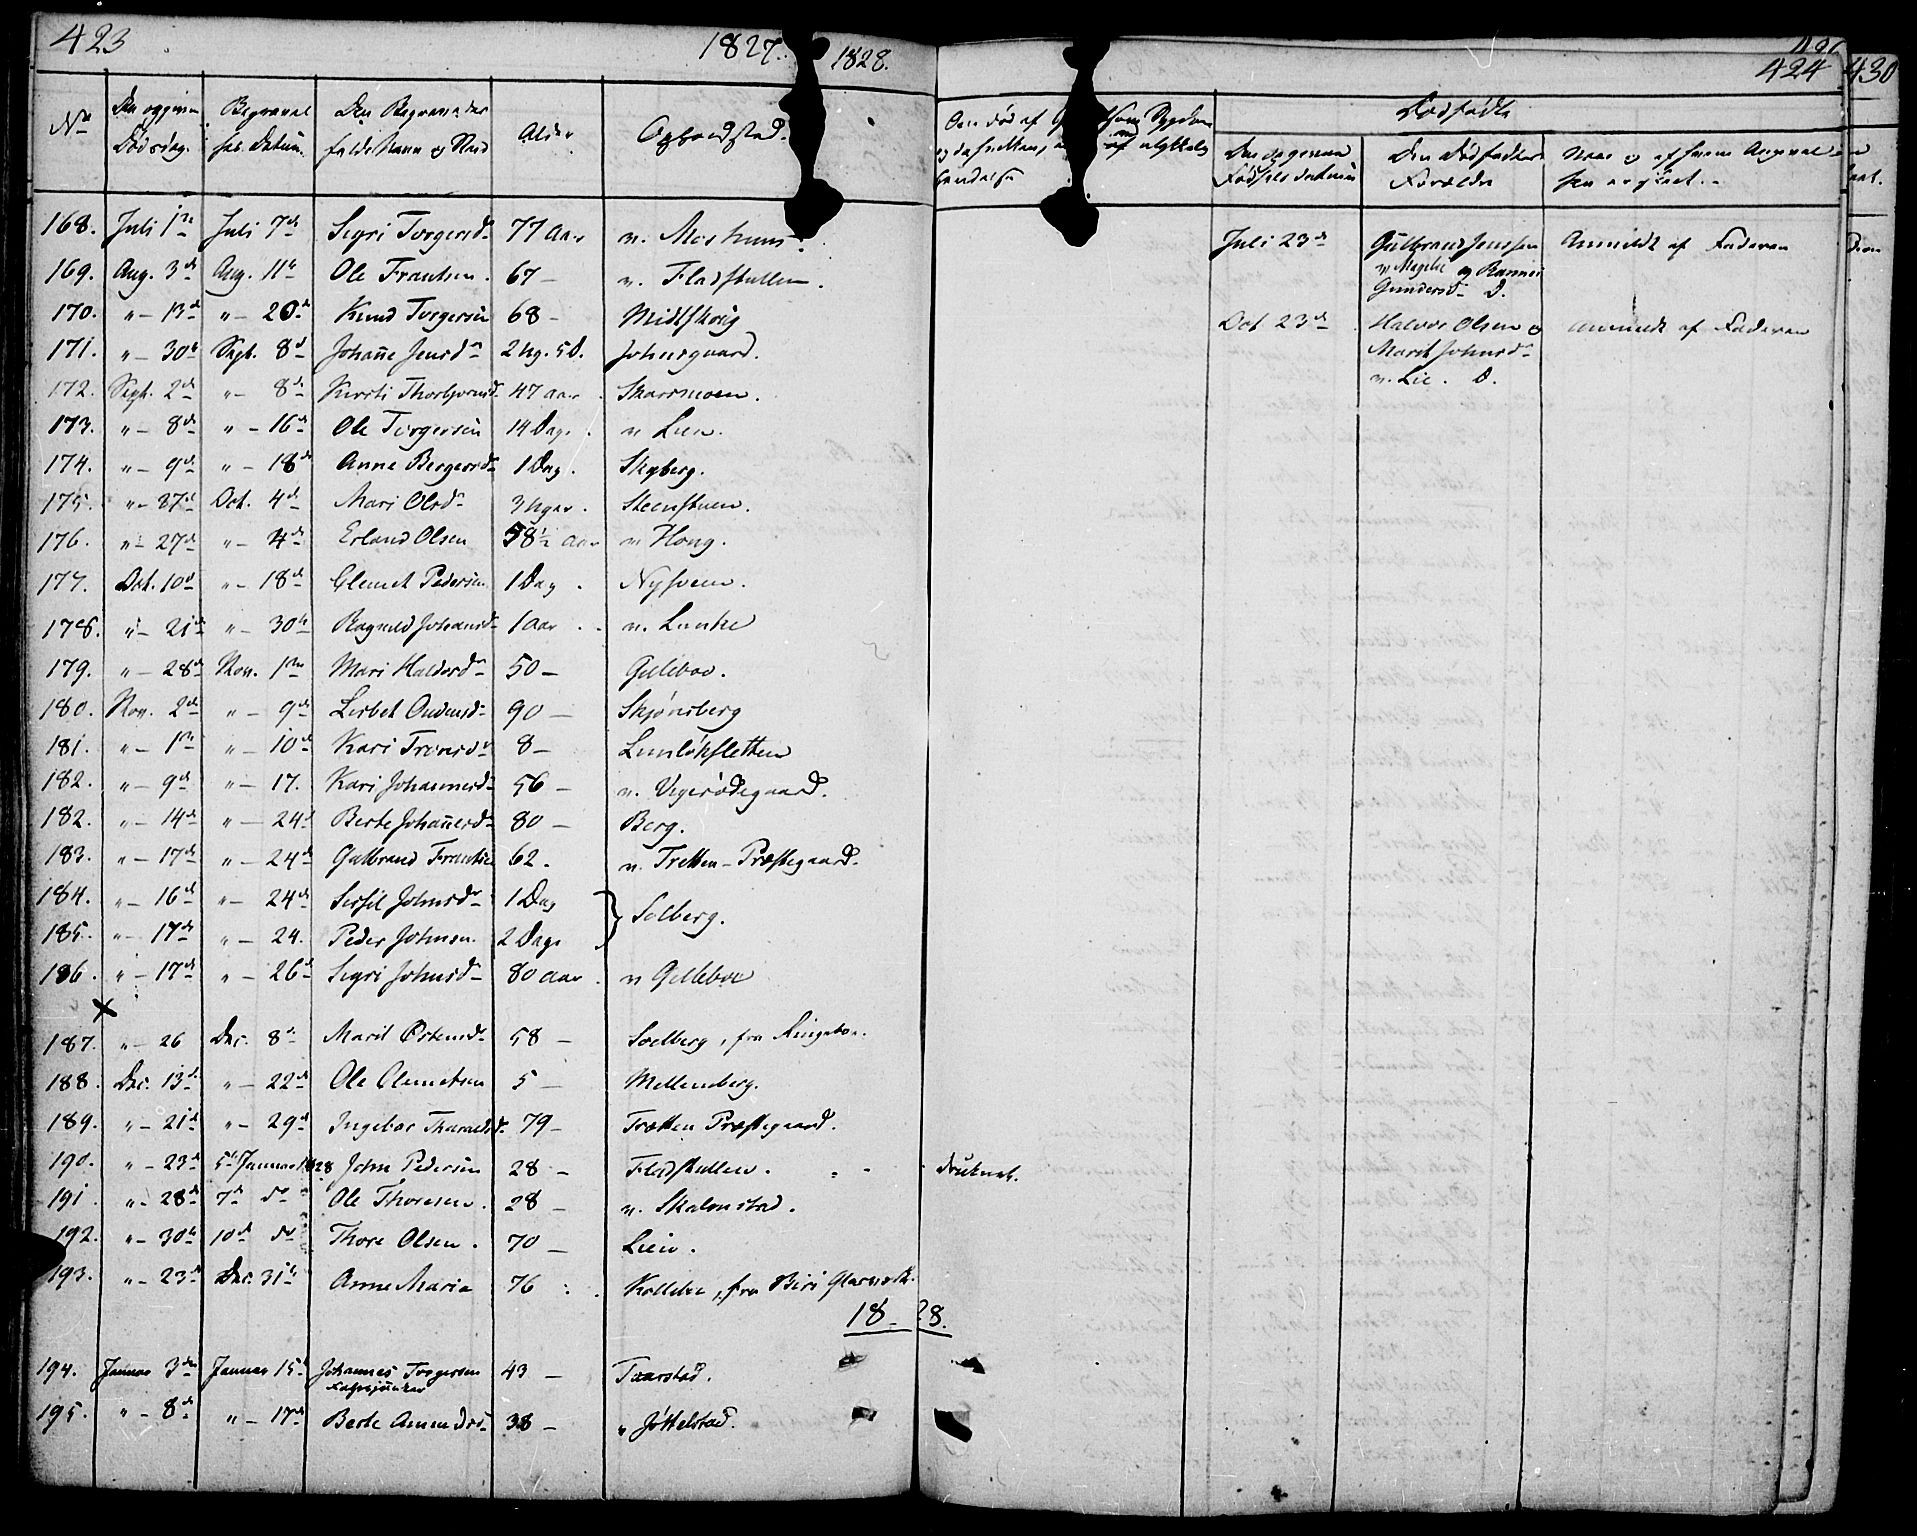 423
1827. 1828.
No
Den opgivne Dödsdag.
Begravel ses Datum.
Den Begravedes fulde Navn og Stand
Alder
Opholdsted.
168. Juli 1ste Juli 7de Sigri Torgersd. 77 Aar
169. Aug. 3de Aug. 11te Ole Frantsen. 67 – n. Fladstullen.
170. " – 13de " – 20de Knud Torgersen 68 – Midtskoug
171. " – 30te Sept. 8de Johane Jensd. 2 Ug. 5 D. Johnsgaard.
172. Sept. 2de " – 8de Kirsti Thorbjørnsd. 47 Aar Skarsmoen.
173. " – 8de " – 16de Ole Torgersen 14 Dage. n Lien.
174. " – 9de " – 18de Anne Bergersd. 1 Dag. Skyberg.
175. " – 27de Oct. 4de Mari Olsd. 3 Uger. Steenstuen.
176. " – 27de " – 4de Erland Olsen 58½ Aar n Houg.
177. Oct. 10de " – 18de Clemet Pedersen 1 Dag. Nysveen.
178. " – 21de " – 30te Ragnild Johansd. 1 Aar. n. Lunke
179. " – 28de Nov. 1ste Mari Haldorsd. 50 – Gilleboe.
180. Nov. 2de " – 9de Lisbet Oudensd. 90 – Skjönsberg
181. " – 1ste " – 10de Kari Tronsd. 8 –
182. " – 9de " – 17. Kari Johannesd. 56 – n. Ugerödegaard.
182. " – 14de " – 24de Berte Johanesd. 80 – Berg.
183. " – 17de " – 24de Gulbrand Frantsen 62. n. Tretten-Præstegaard.
184. " – 16de " – 24de Sirsil Johnsd. 1 Dag
185. " – 17de " – 24. Peder Johnsen. 2 Dage } Solberg.
186. " – 17de " – 26de Sigri Johnsd. 80 Aar. n Gilleboe
187. " – 26 Dec. 8de Marit Östensd. 58 – Soelberg, fra Ringeboe.
188. Dec. 13de " – 22de Ole Clemetsen 5 – Mellemberg.
189. " – 21de " – 29de Ingebor Tharaldsd. 79 – Tretten Præstegaard.
190. " – 23de 5te Januar 1828 John Pedersen 28 – Fladstullen. " – druknet.
191. " – 28de 7de do Ole Thoresen. 28 – n. Skalmstad.
192. " – 30te 10de do Thore Olsen. 70 – Lien.
193. " – 23de Dec. 31te Anne Maria 76 Kolleboe, fra Biri Glasværk.
18 28.
194. Januar 3die Januar 15te Johannes Torgersen 43 – Taarstad.
195. " – 8de " – 17de Berte Amundsd. 38 – " Jöttelstad.
424
430
Dödfödte
Den opgivne Födsels Datum
Den Dödfödtes Forældre
Naar og af hvem Anmeldelsen er skeet.
Juli 23de Gulbrand Jenssen og Ranni Gundersd. D. Anmeldt af Faderen
Oct 23de Halvor Olsen og Marit Johnsd. n. Lie. D. anmeldt af Faderen